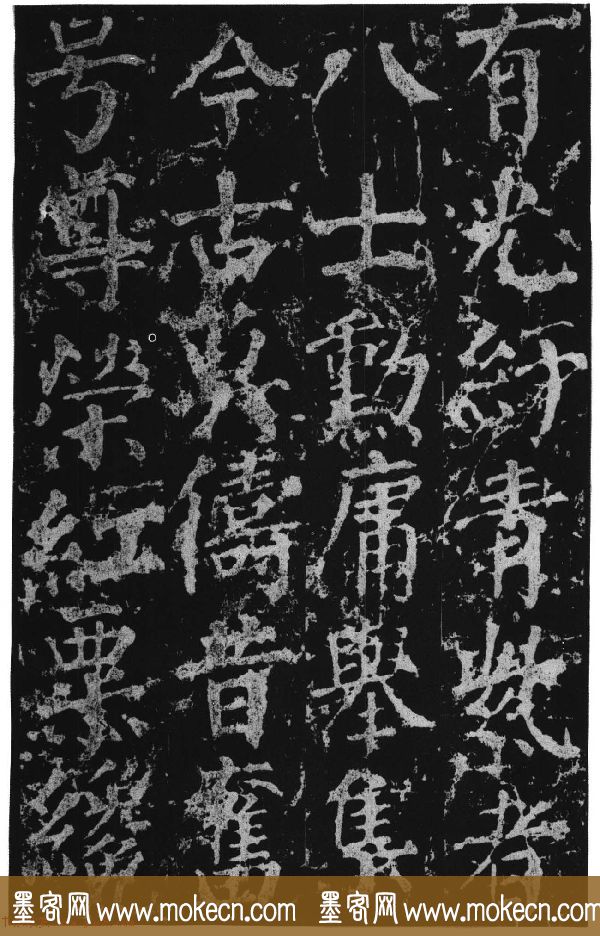 有光紆青紫者
八士勳庸舉集
今古儔昔奮
号尊榮紅粟
墨客网 www.mokecn.com 墨客网 www.mokecn.com